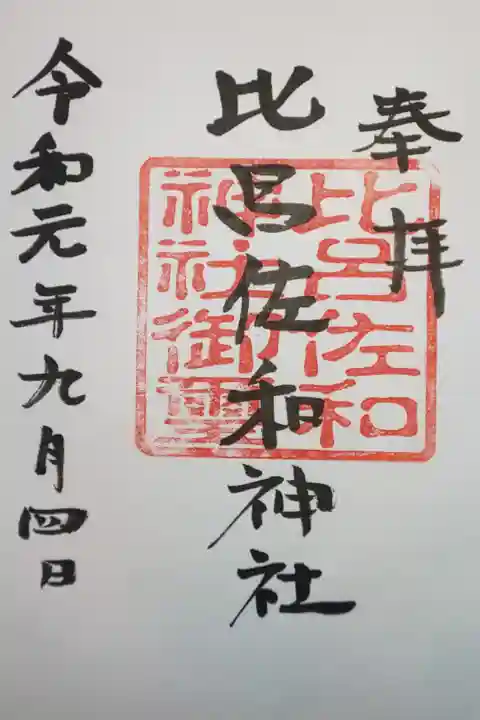 奉拝
比呂佐和神社
比呂佐和
神社御霊
令和元年九月四日